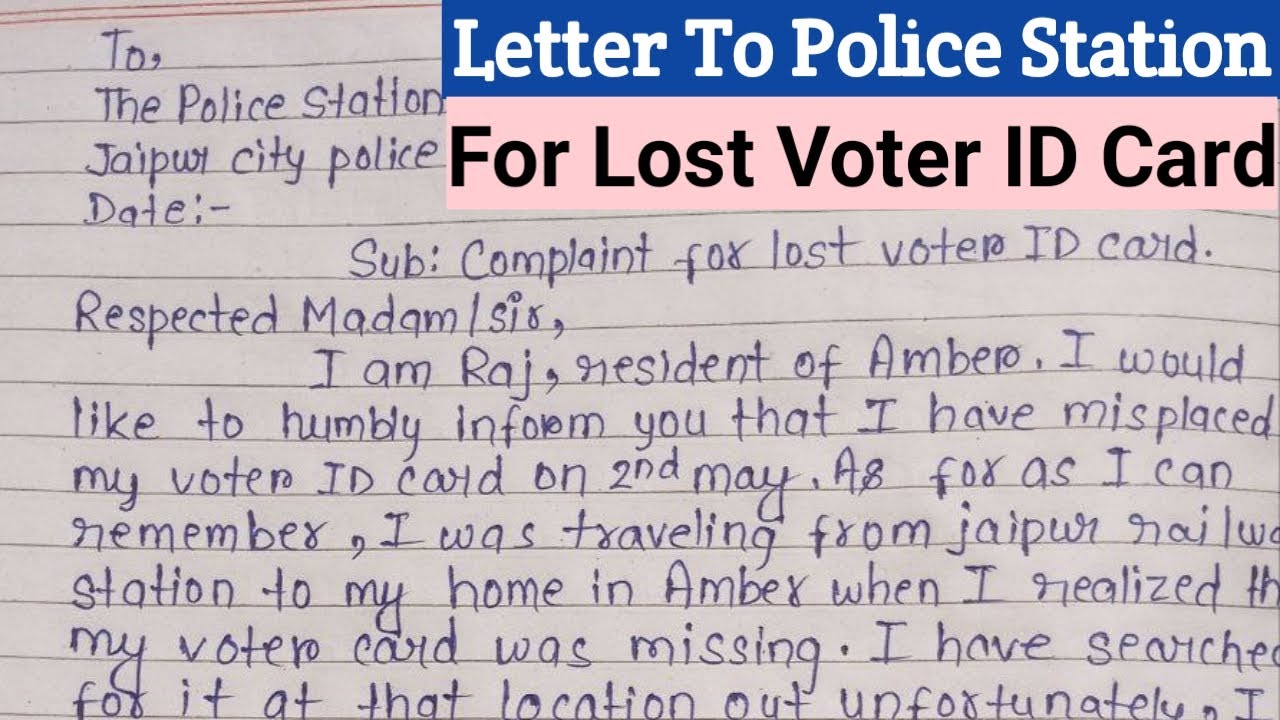 Letter To Police Station
For Lost Voter ID Card
To,
The Police Station
Jaipur city police
Date:-
Sub: Complaint for lost voter ID card.
Respected Madam/sir,
I am Raj, resident of Amber. I would
like to humbly inform you that I have misplaced
my voter ID card on 2nd may. As for as I can
remember, I was traveling from jaipur railwa
station to my home in Amber when I realized th
my voter card was missing. I have searched
for it at that location out unfortunately, I